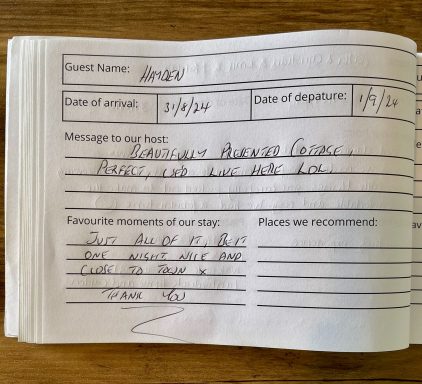 Guest Name: HAYDEN
Date of arrival: 31/8/24 Date of depature: 1/9/24
Message to our host:
BEAUTIFULLY PRESENTED COTTAGE,
PERFECT, LIVE HERE LOL.
Favourite moments of our stay:
JUST ALL OF IT, BEIT
ONE NIGHT NICE AND
CLOSE TO TOWN x
THANK YOU
Places we recommend: